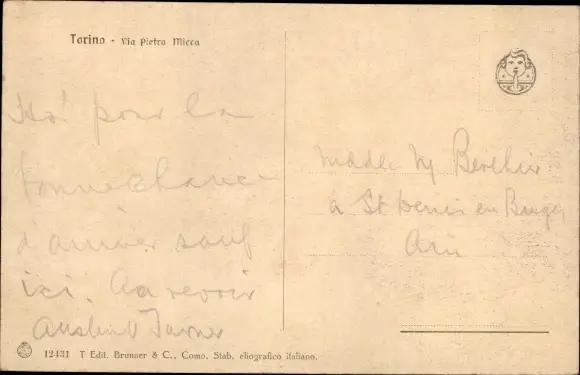 Torino - Via Pietro Micca
pour la
bonne chance
d'arriver sauf
ici. Au revoir
Turner
Madlle
à St Denis en Bugey
Ain
12431 T Edit. Brunner & C., Como. Stab. eliografico italiano.